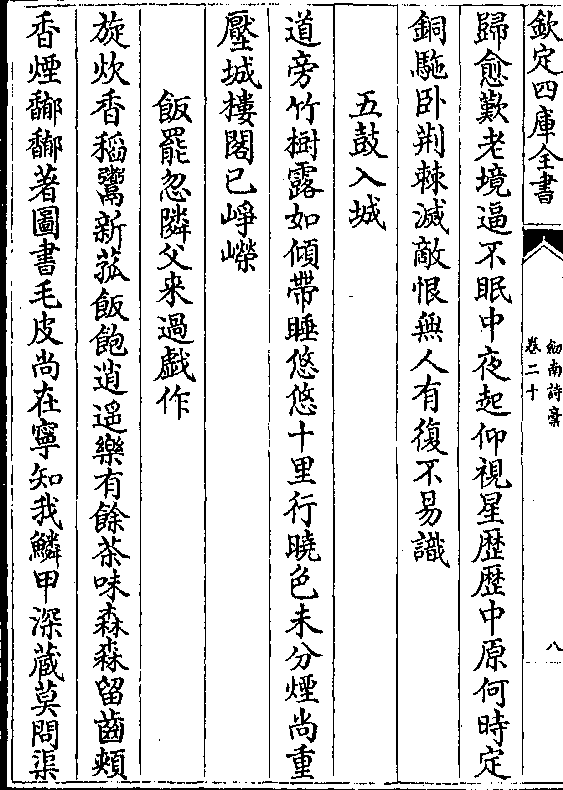 欽定四庫全書
劒南詩稾
卷二十
八
歸愈歎老境逼不眠中夜起仰視星歴歴中原何時定
銅駞卧荆棘滅敵恨無人有復不易識
五鼓入城
道旁竹樹露如傾帶睡悠悠十里行曉色未分煙尚重
壓城樓閣已崢嶸
飯罷忽隣父来過戯作
旋炊香稻鬻新菰飯飽逍遥樂有餘茶味森森留齒頰
香煙馪馪著圖書毛皮尚在寧知我鱗甲深蔵莫問渠